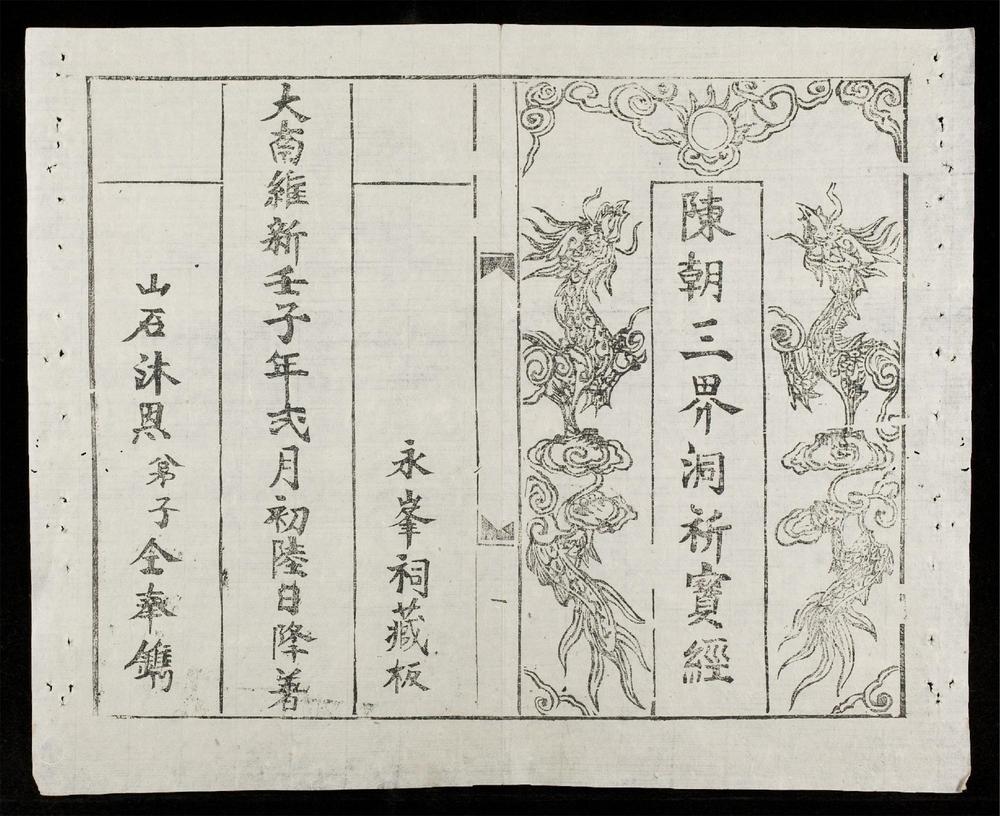 陳朝三界洞祈寳經
永峯祠藏板
大南維新壬子年弍月初陸日降著
山石沐恩弟子仝奉鐫